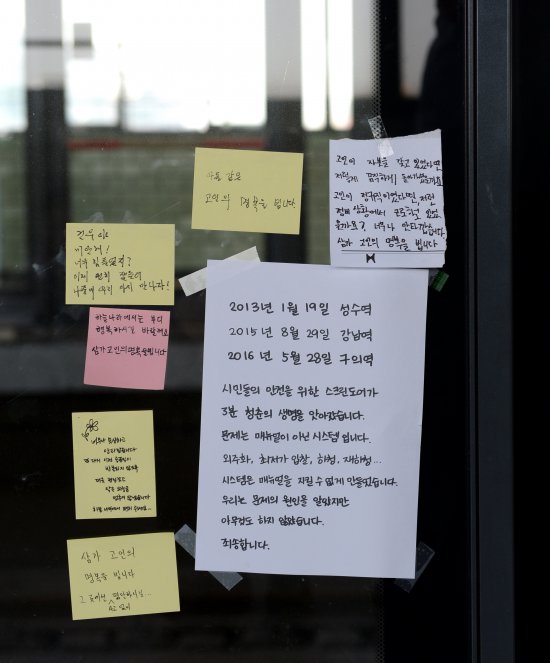 마음 깊은
고인의 명복을 빕니다.
고인이 자본을 갖고 있었다면
저렇게 끔찍하게 돌아가셨을까요
고인이 정규직이었다면, 저런
업무 상황에서 근무하고 있었
을까요? 너무나 안타깝습니다
삼가 고인의 명복을 빕니다
미안해!
너무 힘들었지?
이제 편히 잠들어
나중에 우리 다시 만나자!
하늘나라에서는 부디
행복하시길 바랄게요
삼가 고인의 명복을 빕니다
2013년 1월 19일 성수역
2015년 8월 29일 강남역
2016년 5월 28일 구의역
시민들의 안전을 위한 스크린도어가
3분 청춘의 생명을 앗아갔습니다.
문제는 매뉴얼이 아닌 시스템 입니다.
외주화, 최저가 입찰, 하청, 재하청...
시스템은 매뉴얼을 지킬 수 없게 만들었습니다.
우리는 문제의 원인을 알았지만
아무것도 하지 않았습니다.
죄송합니다.
너무나
삼가 고인의
명복을 빕니다
그 곳에선